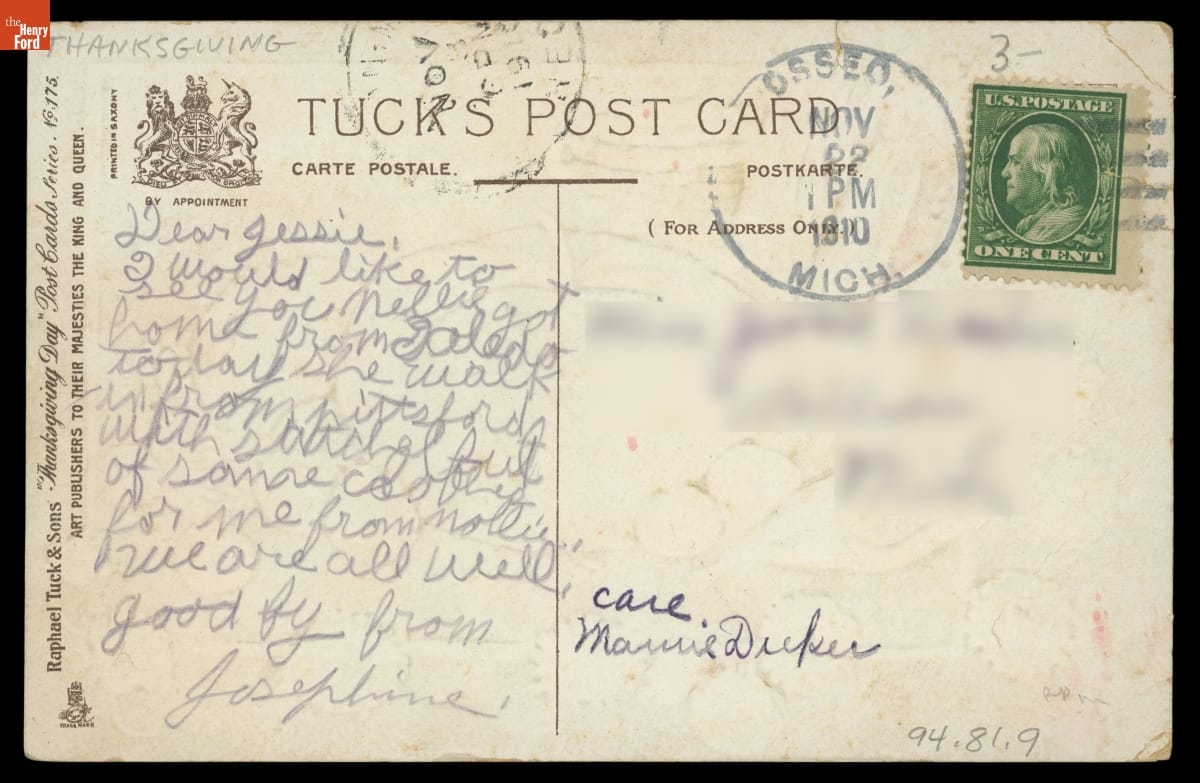 the
Henry
Ford
THANKSGIVING
3-
Raphael Tuck & Sons' "Thanksgiving Day" Post Cards Series. No. 175.
ART PUBLISHERS TO THEIR MAJESTIES THE KING AND QUEEN.
PRINTED IN SAXONY
BY APPOINTMENT
TRADE MARK
NOV
TUCK'S POST CARD
CARTE POSTALE.
POSTKARTE.
(FOR ADDRESS ONLY.)
OSSEO,
NOV
22
1 PM
1910
MICH.
U.S. POSTAGE
ONE CENT
Dear Jessie,
I would like to
see you Nellie got
home from
today she walk
in from pittsford
with satchel full
of some
for me from nollie
we are all well,
good by from
Josephine.
care
Mamie
94.81.9